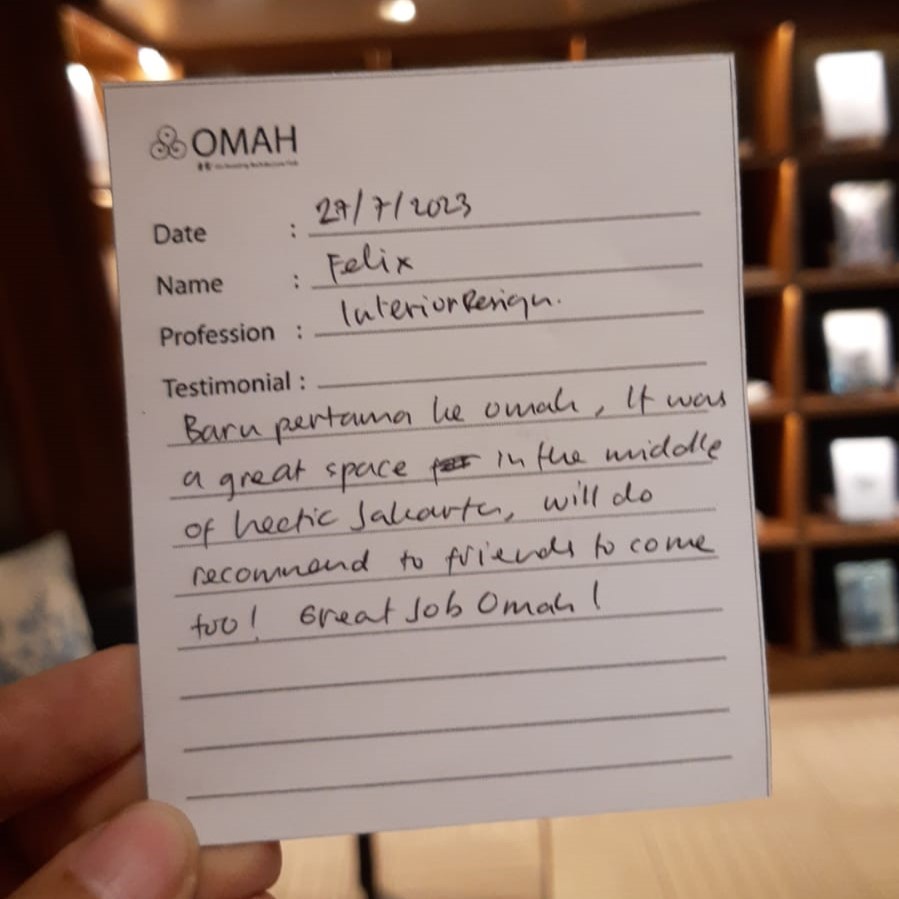 OMAH
Date : 27/7/2023
Name : Felix
Profession : Interior Design.
Testimonial :
Baru pertama ke omah, It was
a great space in the middle
of hectic Jakarta, will do
recommend to friends to come
too! Great Job Omah!